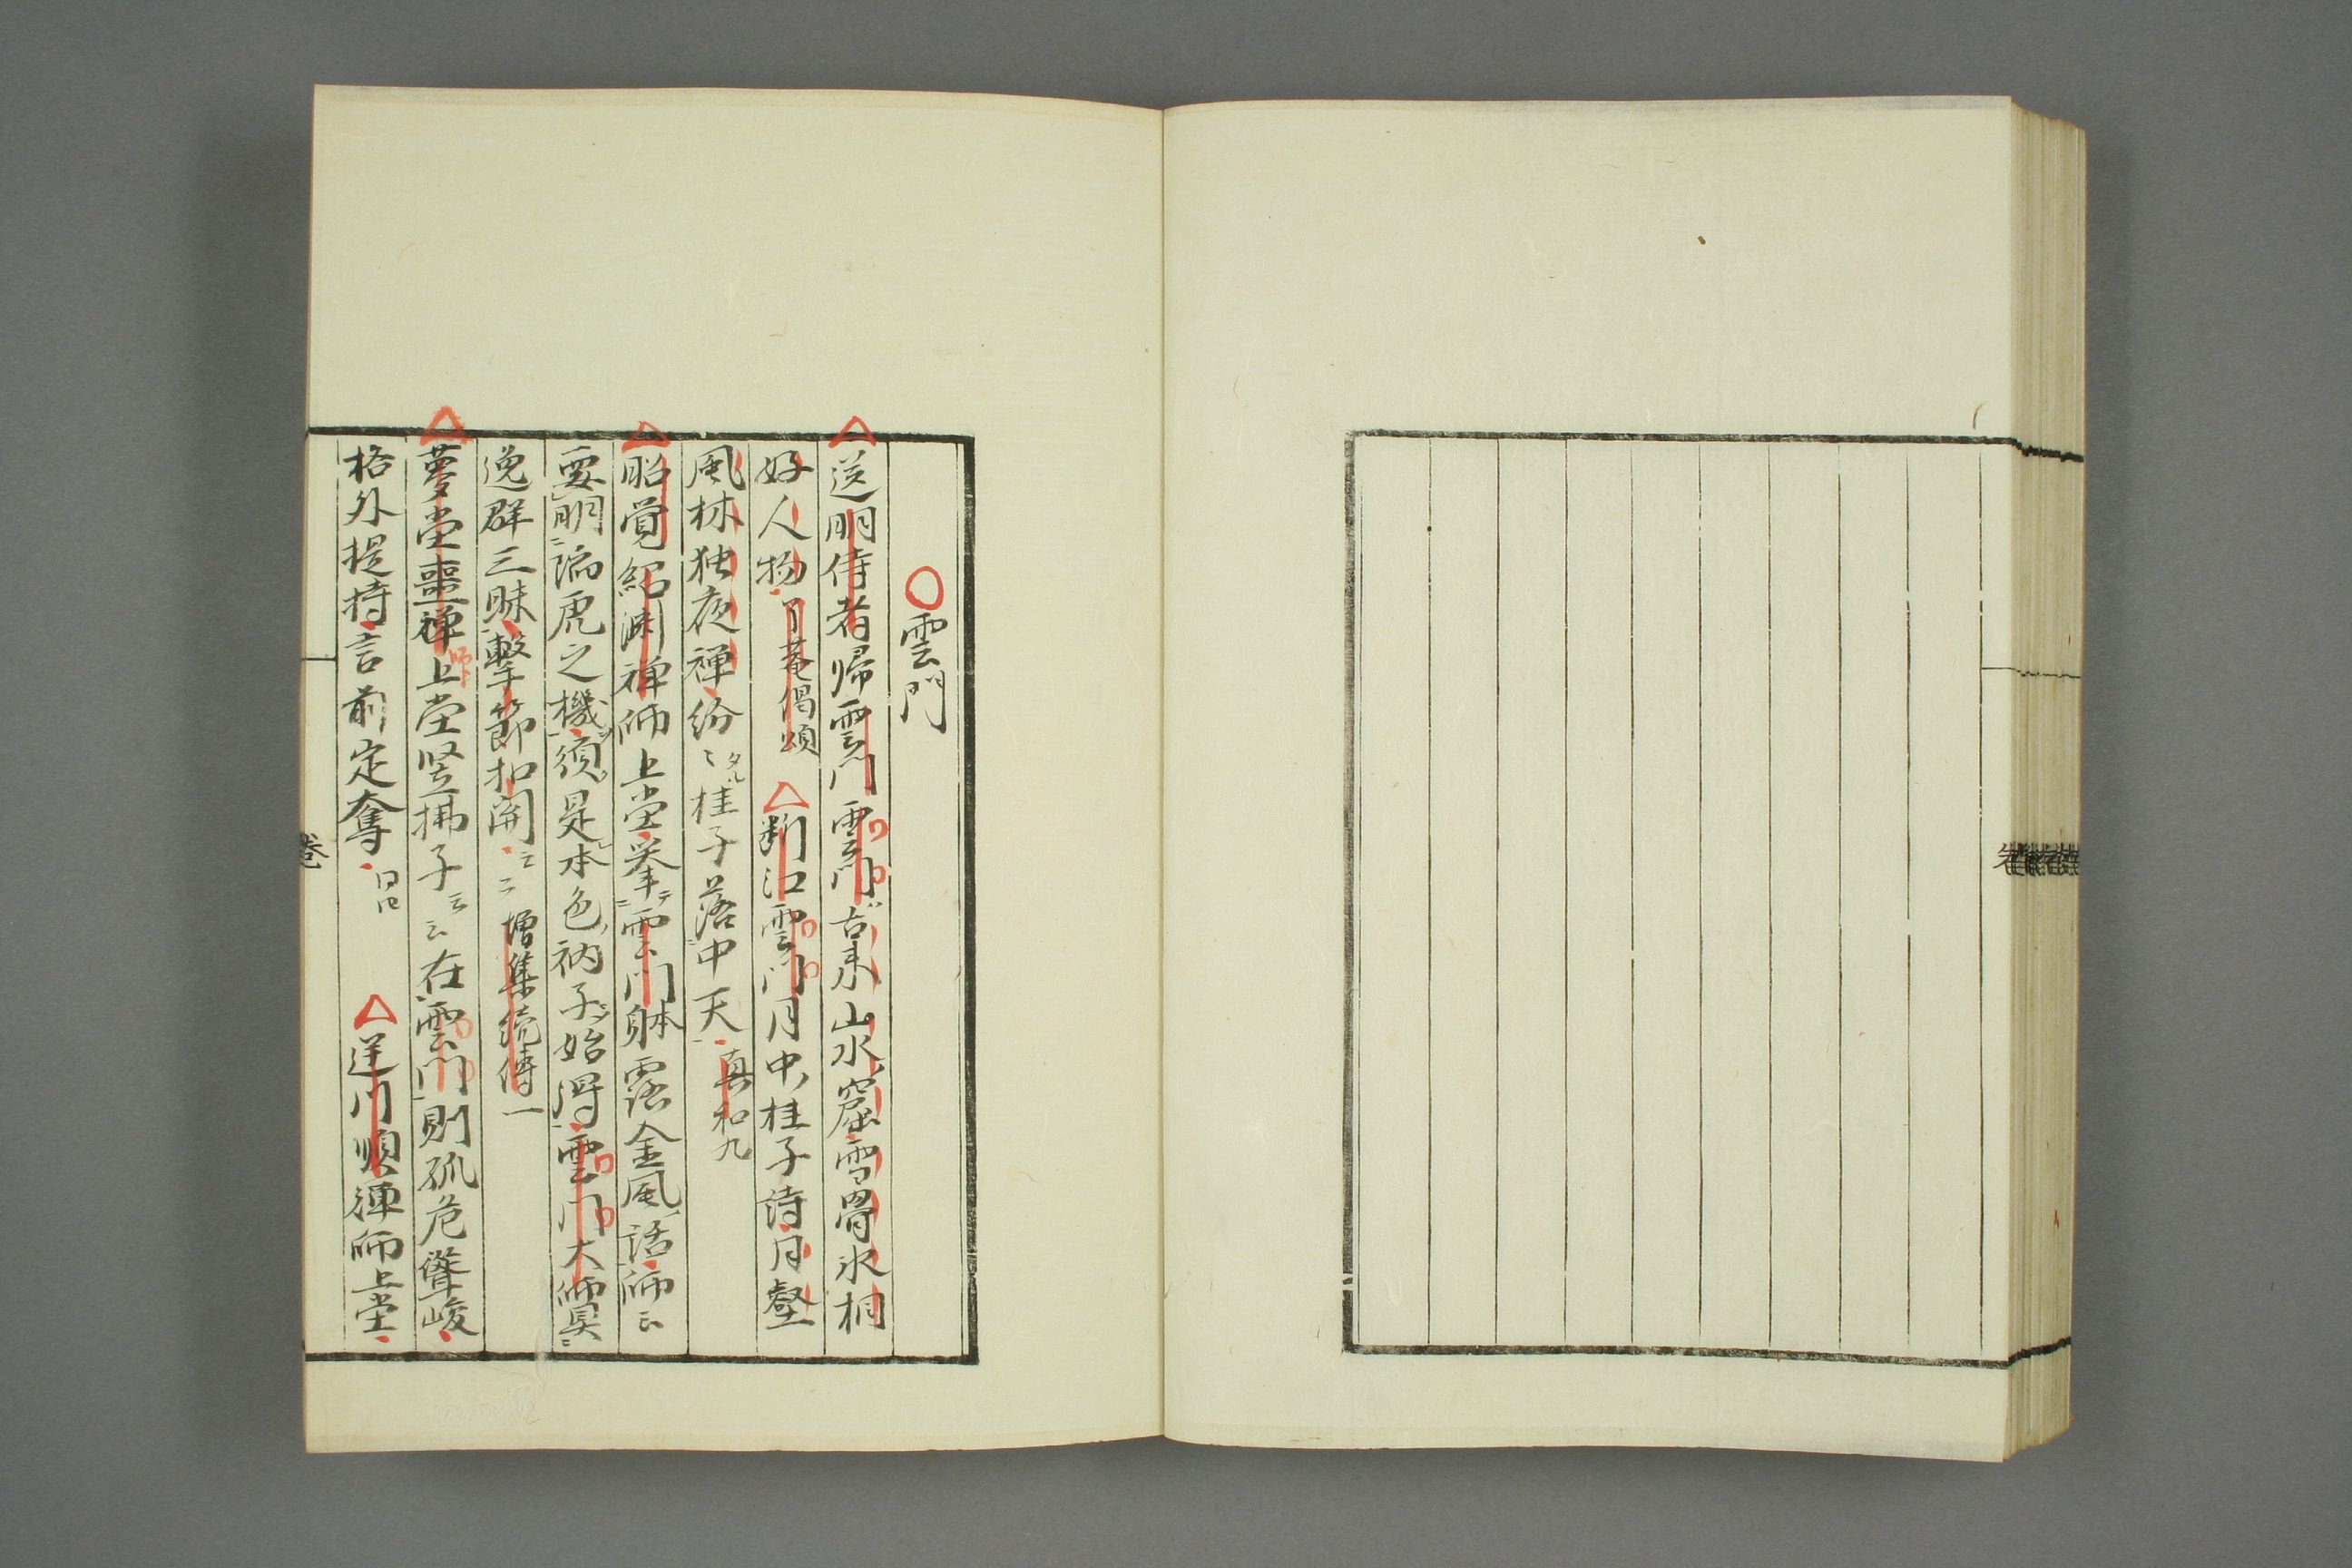 雲門
送明侍者帰雲門 雲門古来山水窟雪骨氷桐
好人物 了菴偈頌 断江雲門月中桂子詩月壑
風林独夜禅紛々タル桂子落中天 真和九
昭覚紹渊禅師上堂挙雲門躰露金風話師云
要明陥虎之機須是本色衲子始得雲門大師
逸群三昧撃節扣関云云 増集続傳一
夢堂噩禅師上堂竪拂子云云在雲門則孤危聳峻
格外提持言前定奪 同 逆川順禅師上堂
巻